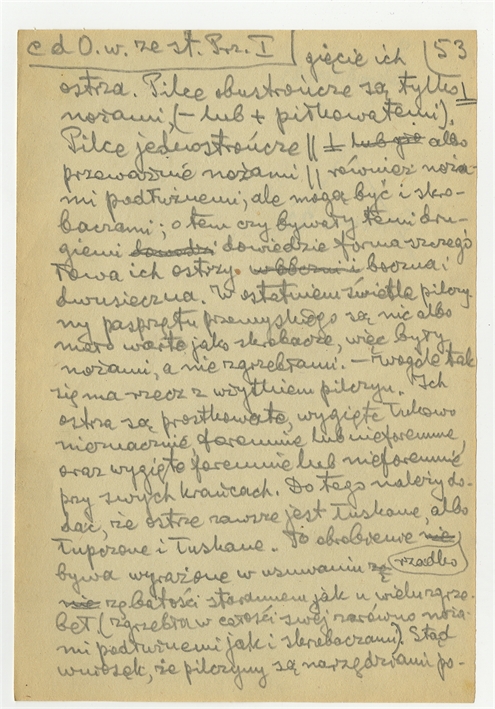 c d O. w. ze st. Prz. I 53
gięcie ich
ostrza. Piłce obustrończe są tylko ⊥
nożami, (– lub + piłkowatemi).
Piłce jednostrończe || ⊥ albo
przeważnie nożami || również noża-
mi podłużnemi, ale mogą być i skro-
baczami; o tem czy bywały temi dru-
giemi dowiedzie forma szczegó
łowa ich ostrzy. boczna i
dwusieczna. W ostatniem świetle pilczy-
ny pasprzętu przemyskiego są nic albo
mało warte jako skrobacze, więc były
nożami, a nie zgrzebłami. – Wogóle tak
się ma rzecz z użytkiem pilczyn. Ich
ostrza są prostkowate, wygięte łukowo
nieznacznie, foremnie lub nieforemnie,
oraz wygięte foremnie lub nieforemnie
przy swych krańcach. Do tego należy do-
dać, że ostrze zawsze jest łuskane, albo
łupczone i łuskane. To obrobienie nie
bywa wyrażone w usuwaniu rzadko
nie zębatości starannem jak u wielu zgrze-
beł (zgrzebła w całości swej zarówno noża-
mi podłużnemi jak i skrobaczami). Stąd
wniosek, że pilczyny są narzędziami po-